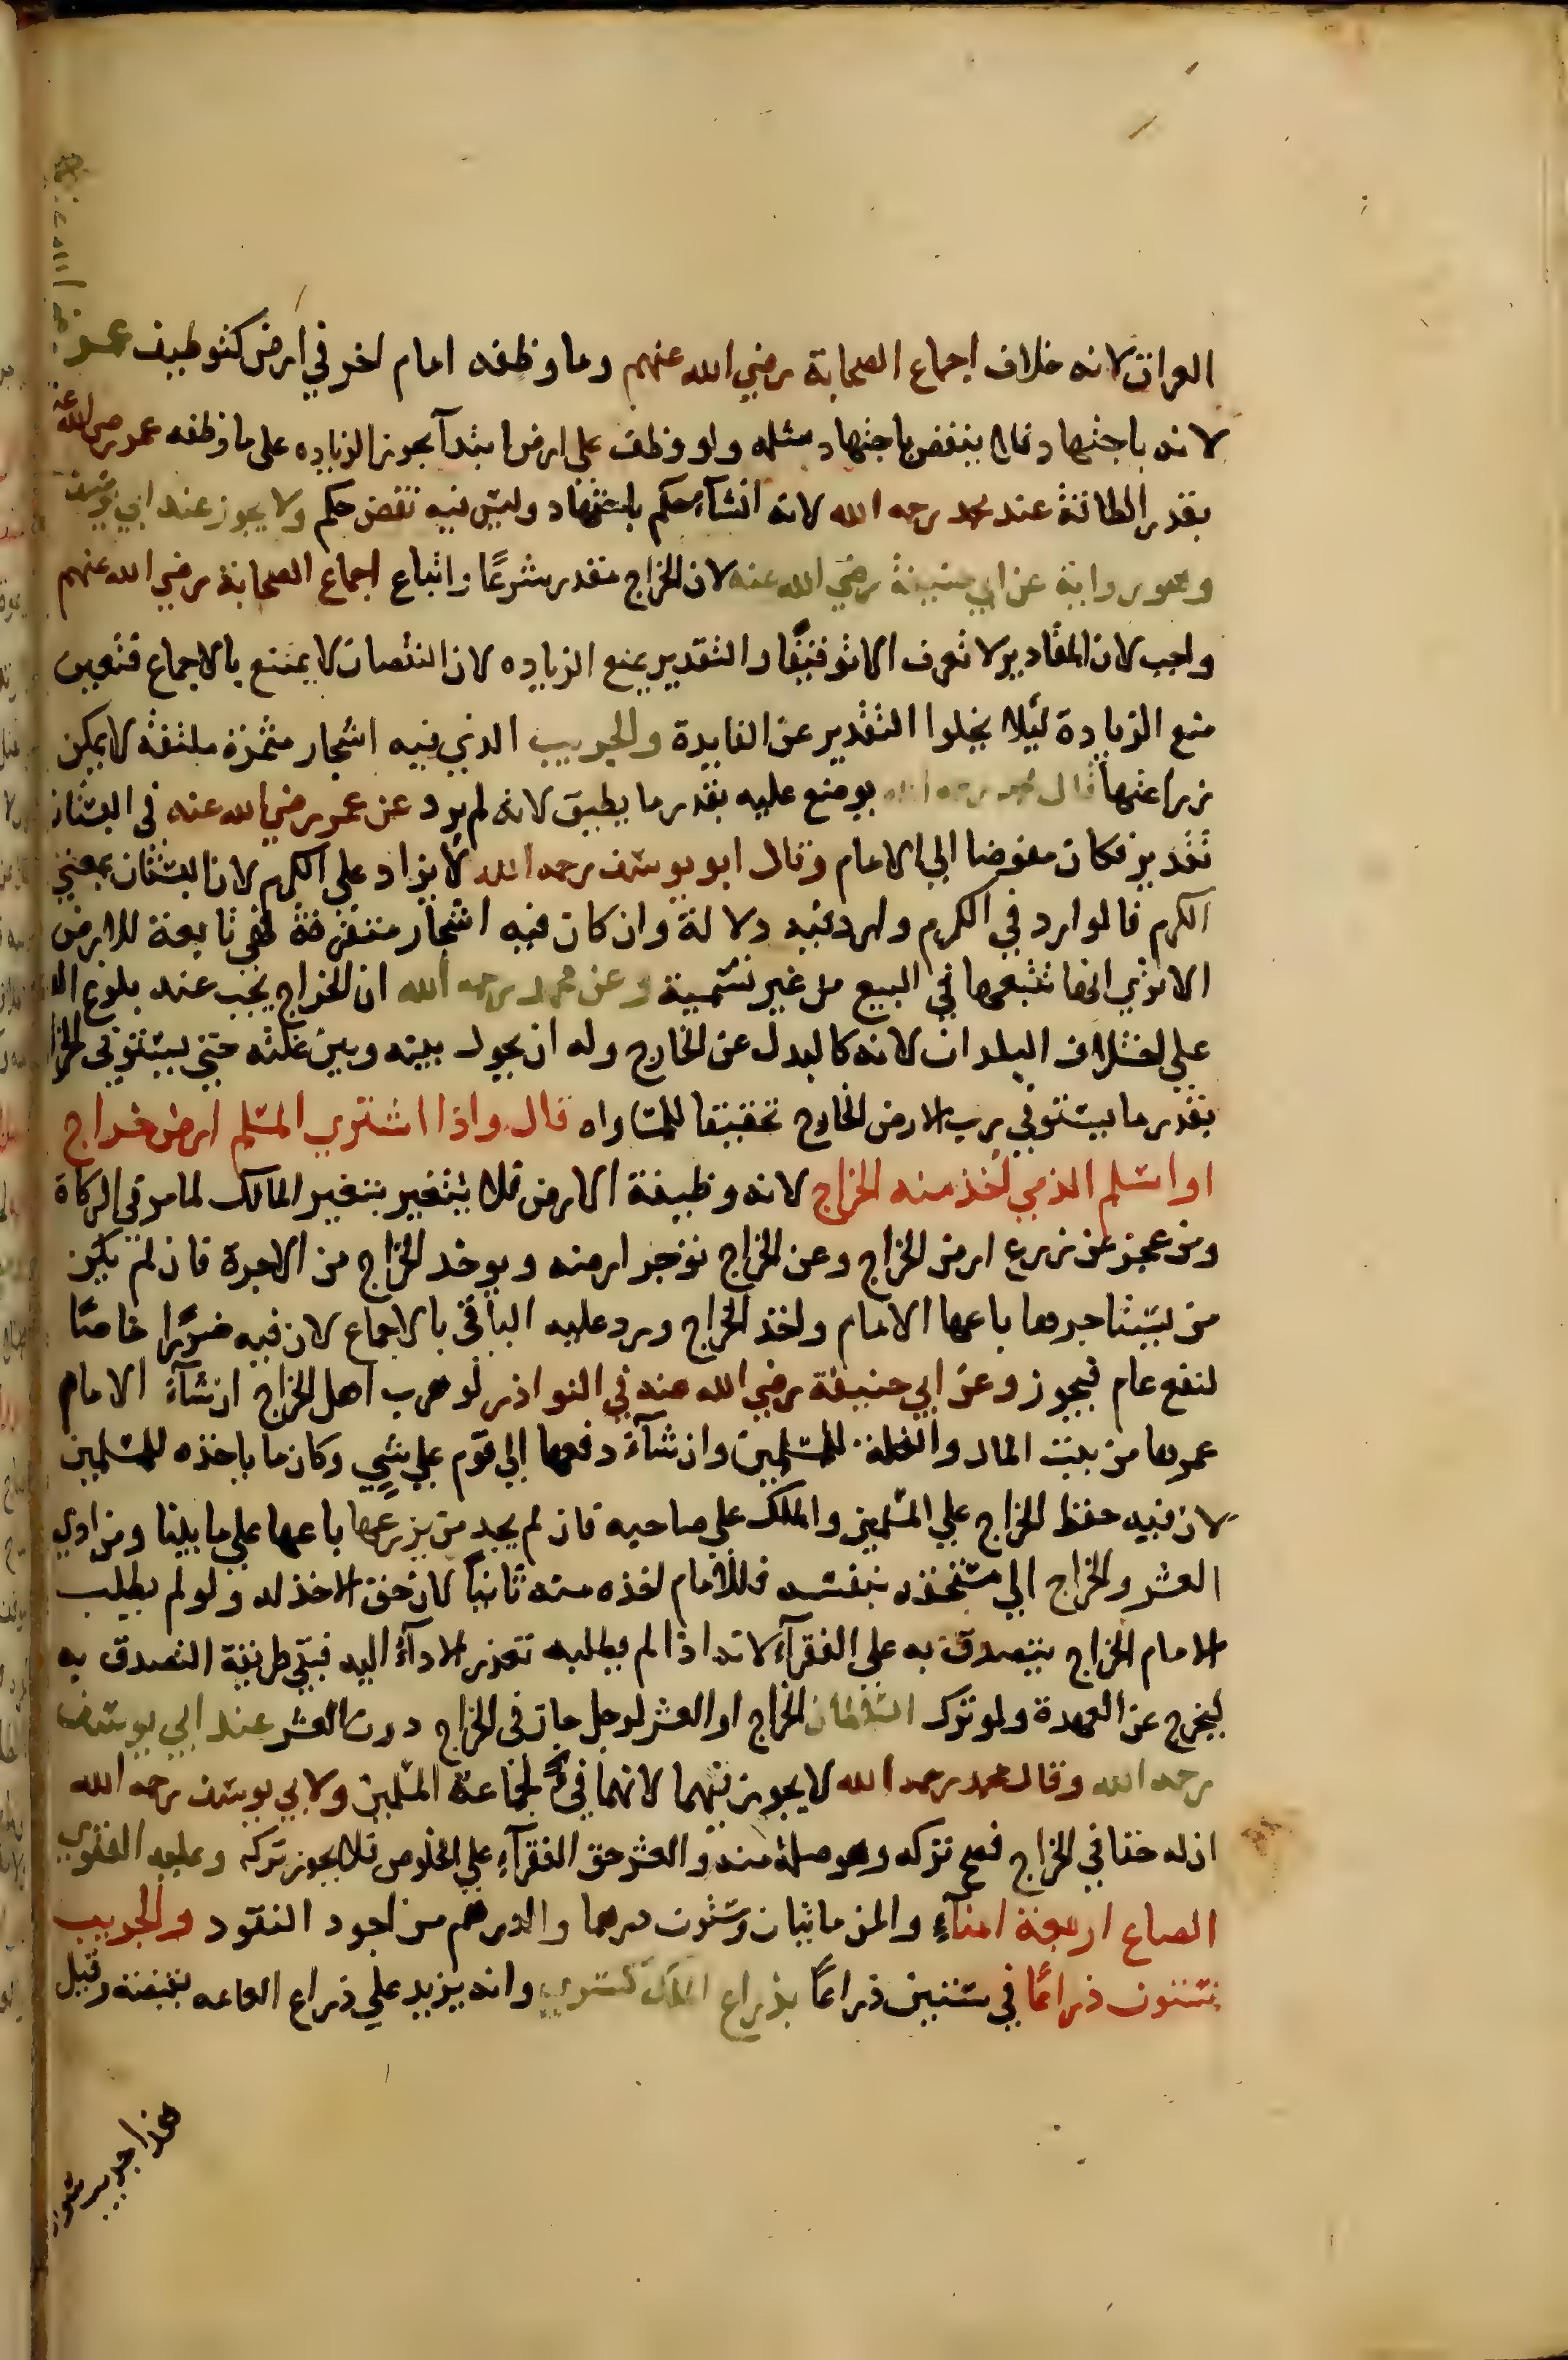 العراق لانه خلاف اجماع الصحابة رضي الله عنهم وما وظفه امام اخر في ارض كتوظيف عمر
لانه باجتهاد فلا ينقض باجتهاد مثله ولو وظف على ارض ابتدآ يجوز الزياده على ما وظفه عمر رضي الله عنه
بقدر الطاقة عند محمد رحمه الله لانه انشآء حكم باجتهاد وليس فيه نقض حكم ولا يجوز عند ابي يوسف
وهو رواية عن ابي حنيفة رضي الله عنه لان الخراج مقدر شرعًا واتباع اجماع الصحابة رضي الله عنهم
واجب لان المقادير لا تعرف الا توقيفًا والتقدير يمنع الزياده لان النقصان لا يمتنع بالاجماع فتعين
منع الزيادة ليلا يخلوا التقدير عن الفايدة والجريب الذي فيه اشجار مثمرة ملتفة لا يمكن
زراعتها قال محمد رحمه الله يوضع عليه بقدر ما يطيق لانه لم يرد عن عمر رضي الله عنه في البستان
تقدير فكان مفوضا الي الامام وقال ابو يوسف رحمه الله لا يزاد على الكرم لان البستان بمعني
الكرم فالوارد في الكرم وارد فيه دلالة وان كان فيه اشجار متفرقة فهي تابعة للارض
الا تري انها تتبعها في البيع من غير تسمية وعن محمد رحمه الله ان الخراج يجب عند بلوغ
علي اختلاف البلدان لانه كالبدل عن الخارج وله ان يحول بينه وبين غلته حتي يستوفي
بقدر ما يستوفي رب الارض الخارج تحقيقا للمساواه قال واذا اشتري المسلم ارض خراج
او اسلم الذمي اخذ منه الخراج لانه وظيفة الارض فلا يتغير بتغير المالك لما مر في الزكاة
ومن عجز عن زرع ارض الخراج وعن الخراج نوجر ارضه ويوخذ الخراج من الاجرة فان لم يكن
من يستاجرها باعها الامام واخذ الخراج ورد عليه الباقي بالاجماع لان فيه ضررا خاصًا
لنفع عام فيجوز وعن ابي حنيفة رضي الله عنه في النوادر لو هرب اهل الخراج ان شآء الامام
عمرها من بيت المال والغلة للمسلمين وان شآء دفعها الي قوم علي شيء وكان ما ياخذه للمسلمين
لان فيه حفظ الخراج علي المسلمين والملك علي صاحبه فان لم يجد من يزرعها باعها علي ما بينا ومن ادي
العشر والخراج الي مستحقه بنفسه فللامام اخذه منه ثانيًا لان حق الاخذ له ولو لم يطلب
الامام الخراج يتصدق به علي الفقرآء لانه اذا لم يطلبه تعذر الادآء اليه فبقي طريقة التصدق به
ليخرج عن العهدة ولو ترك السلطان الخراج او العشر لرجل جاز في الخراج دون العشر عند ابي يوسف
رحمه الله وقال محمد رحمه الله لا يجوز فيهما لانهما فيءٌ لجماعة المسلمين ولابي يوسف رحمه الله
ان له حقا في الخراج فصح تركه وهو صلة منه والعشر حق الفقرآء علي الخلوص فلا يجوز تركه وعليه الفتوي
الصاع اربعة امنآء والمن مايتان وستون درهما والدرهم من اجود النقود والجريب
ستون ذراعًا في ستين ذراعًا بذراع الملك كسري وانه يزيد علي ذراع العامه بقبضة وقيل
هذا جريب